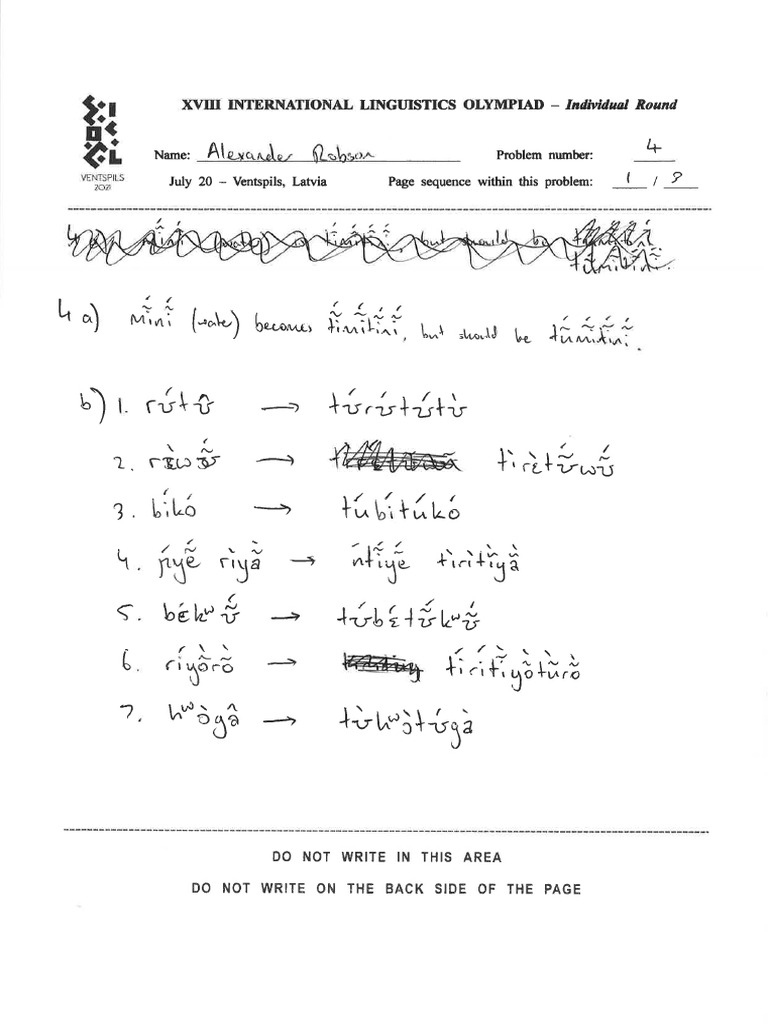 XVIII INTERNATIONAL LINGUISTICS OLYMPIAD – Individual Round
Name: Alexander Robson Problem number: 4
VENTSPILS 2021
July 20 – Ventspils, Latvia Page sequence within this problem: 1 / 3
4 a) mĩ́nĩ́ (water) becomes tĩ́mĩ́tĩ́nĩ́, but should be tṹmĩ́tĩ́nĩ́.
b) 1. rʊ́tʊ̂ → tʊ́rʊ́tʊ́tʊ̀
2. rɛ̀wʊ̃́ → tìrɛ̀tʊ̃́wʊ̃́
3. bíkó → túbítúkó
4. ɲ́yẽ́ rìyã̀ → ńtĩ́yẽ́ tìrìtĩ̀yã̀
5. bɛ́kʷʊ̃́ → tʊ́bɛ́tʊ̃́kʷʊ̃́
6. ríyõ̀rõ̀ → tírítĩ̀yõ̀tũ̀rõ̀
7. hʷɔ̀gâ → tʊ̀hʷɔ̀tʊ́gà
DO NOT WRITE IN THIS AREA
DO NOT WRITE ON THE BACK SIDE OF THE PAGE